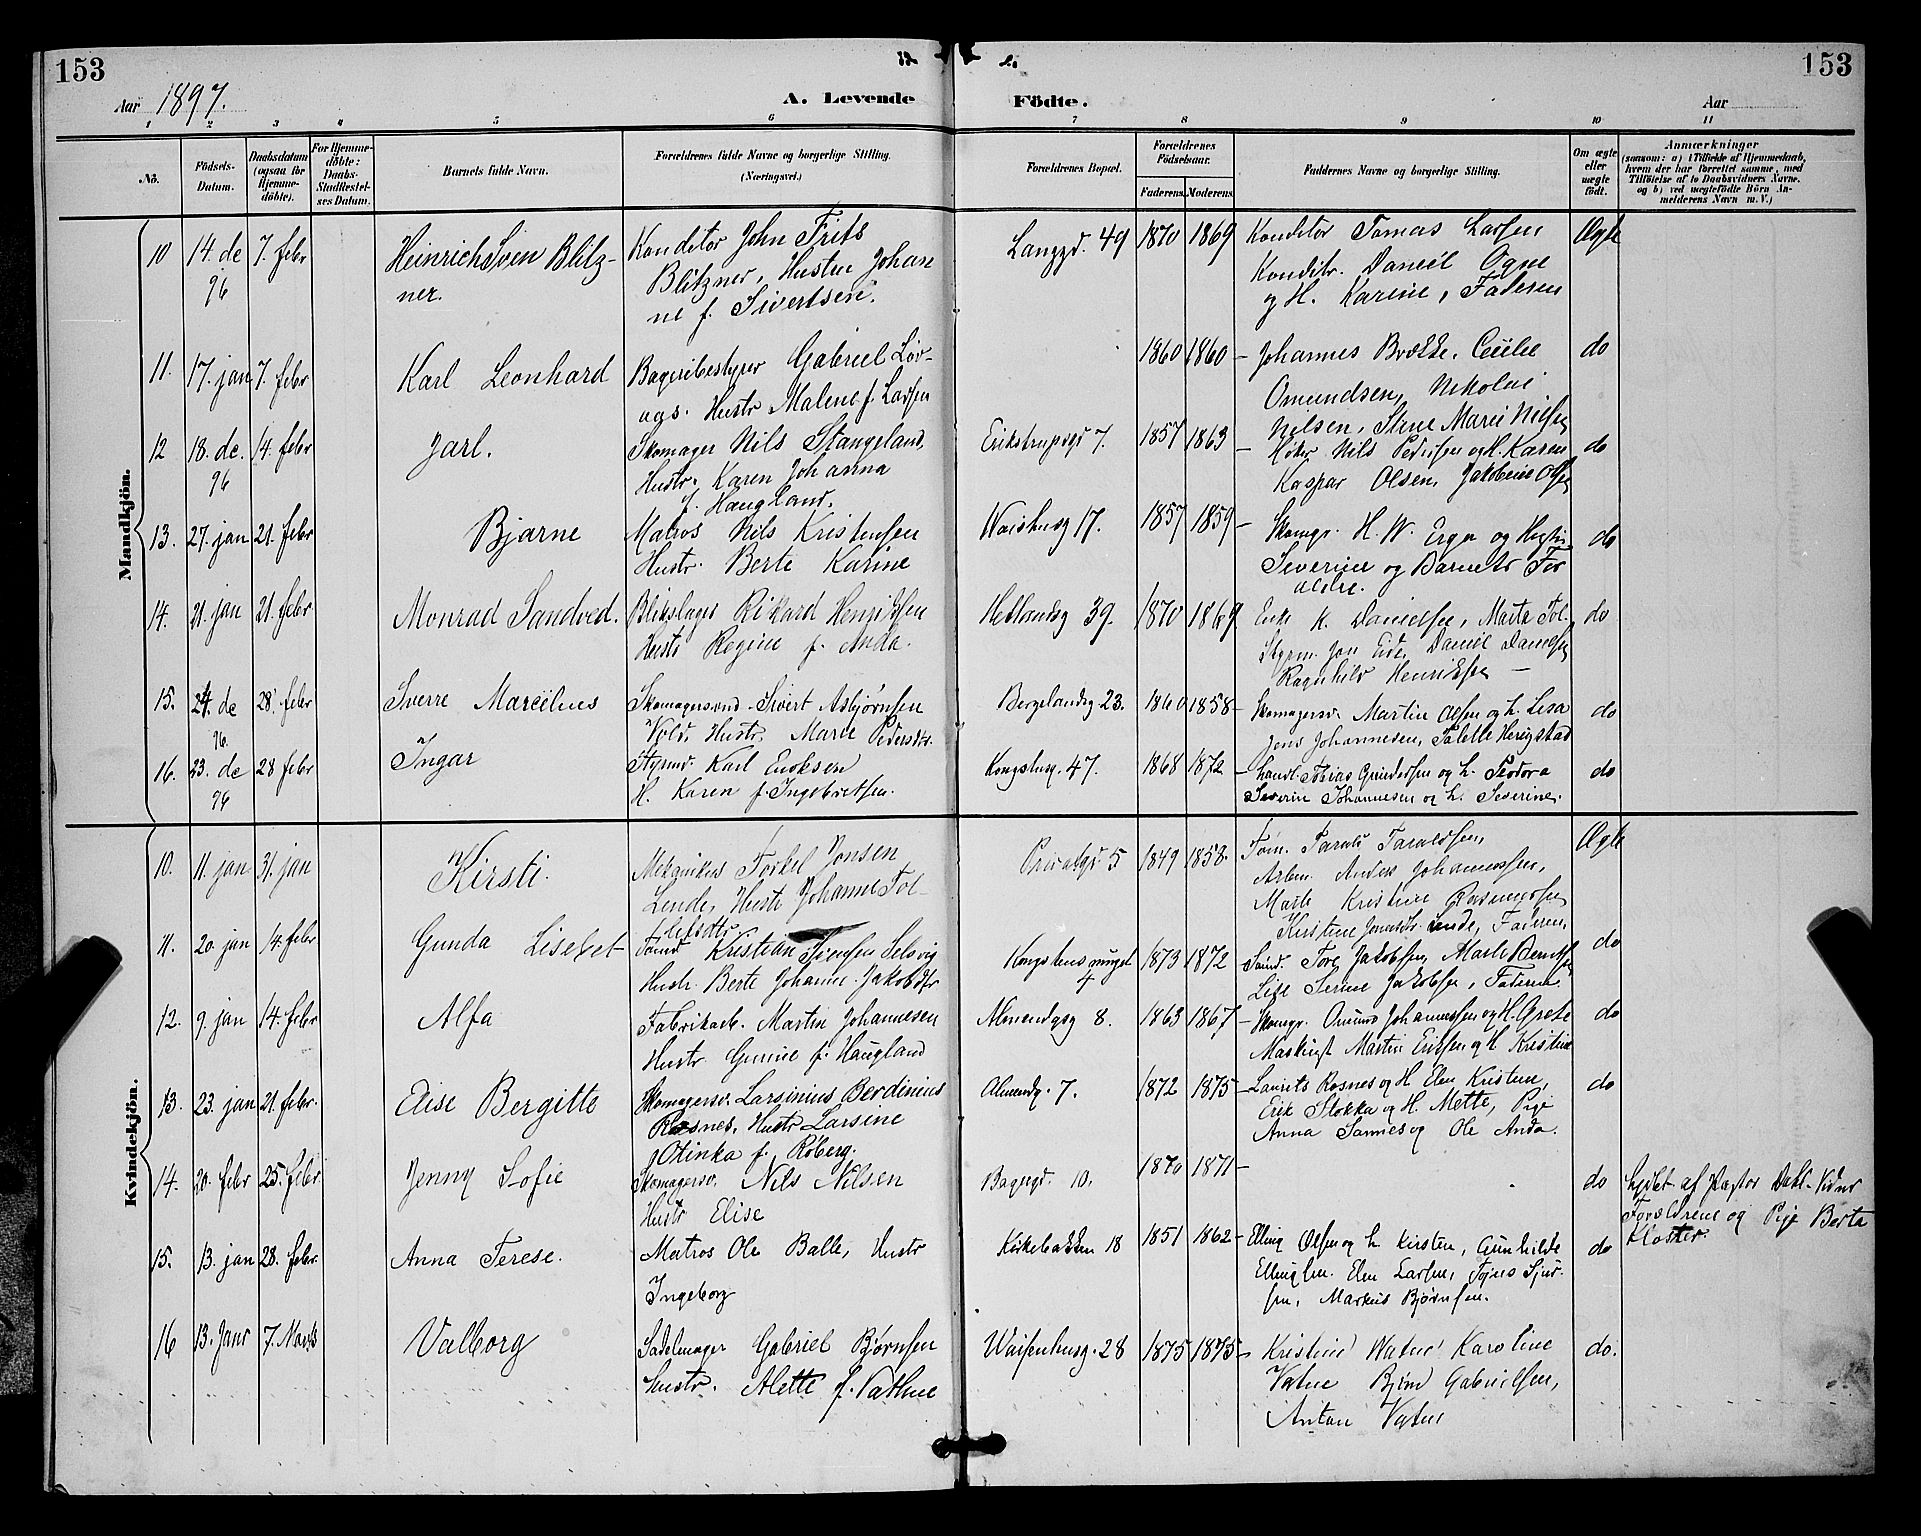 153
153
Aar 1897.
A. Levende
Födte.
Aar
1 2 3 4 5 6 7 8 9 10 11
No.
Födsels-
Datum.
Daabsdatum
(ogsaa for
Hjemme-
döbte).
For Hjemme-
döbte:
Daabs-
Stadfæstel-
ses Datum.
Barnets fulde Navn.
Forældrenes fulde Navne og borgerlige Stilling.
(Næringsvei.)
Forældrenes Bopæl.
Forældrenes
Födselsaar.
Faderens. Moderens.
Faddernes Navne og borgerlige Stilling.
Om ægte
eller
uægte
födt.
Anmærkninger
(saasom: a) i Tilfælde af Hjemmedaab,
hvem der har forrettet samme, med
Tilföielse af to Daabsvidners Navne,
og b) ved uægtefödte Börn An-
melderens Navn m. V.)
Mandkjön.
10 14. de 96 7. febr
Heinrich Sven Blitz-
ner.
Konditor John Frits
Blitzner, Hustru Johan
ne f. Sivertsen.
Langgd. 49 1870 1869
Konditor Tomas Larsen
Konditr. Daniel Ogne
og H. Karine, Faderen
Ægte
11. 17. jan 7. febr
Karl Leonhard
Bageribestyrer Gabriel Löv-
aas. Hustr Malene f. Larsen
1860 1860
Johannes Brække, Cecilie
Omundsen, Nikolai
Nilsen, Stine Marie Nilsen
do
12 18. de. 96 14. febr
Jarl.
Skomager Nils Stangeland,
Hustr. Karen Johanna
f. Haugland.
7. 1857 1863
Nils Pedersen og H. Karen
Kaspar Olsen, Jakobine Olsen
do
13. 27. jan 21. febr
Bjarne
Matros Nils Kristensen
Hustr. Berte Karine
17. 1857 1859
Skomgr. H. W. og Hustru
Severine og Barnets For
ældre.
do
14. 21. jan 21. febr
Monrad Sandved.
Blikslager Rikard Henriksen
Hustr Regine f. Anda.
Hetlandsg 39. 1870 1869
K. Danielsen, Marta Tol
Styrm. Jon Eide, Daniel Danielsen
Ragnhild Henriksen
do
15. 24. de 96. 28. febr
Sverre Marcelius
Skomagersvend Sivert Asbjørnsen
Vold, Hustr. Marie Pedersdtr.
Bergelandsg 23. 1860 1858
Skomagersv. Martin Olsen og h. Lisa
Jens Johannesen, Talette Herigstad
do
16. 23. de 96 28 febr
Ingar
Styrmd. Karl Enoksen
H. Karen f. Ingebretsen.
Kongshusg. 47. 1868 1872
Handl. Tobias Gundersen og h. Teodora
Severin Johannesen og h. Severine.
do
Kvindekjön.
10. 11. jan 31. jan
Kirsti.
Mekanikus Torkel Jonsen
Lende, Hustr Johanne Tol-
lefsdtr
5 1849 1858.
Töm. Tarald Taraldsen,
Arbm. Anders Johannessen,
Marte Kristine Rasmussen
Kirstine Lende, Faderen,
Ægte
11. 20. jan 14. febr
Gunda Lisebet
Kristian Selsvig
Hustr. Berte Johanne Jakobsdtr
4 1873 1872
Tore Jakobsen, Marte Berntsen
Lise Serine Jakobsen, Faderen
do
12. 9. jan 14. febr
Alfa
Fabrikarb. Martin Johannesen
Hustr Gunne f. Haugland
8. 1863 1867
Skomgr. Omund Johannessen og H. Grete
Maskingt Martin Eriksen og H Kristine
do
13. 23. jan 21. febr.
Elise Bergitte
Skomagersv. Larsinius Berdinius
Rosnes, Hustr Larsine
Otinka f. Röberg.
Almendg. 7. 1872 1875
Laurits Rosnes og H Elen Kristine,
Erik Stokka og H. Mette, Pige
Anna Sannes og Ole Anda.
do
14. 20. febr 25. febr
Jenny Sofie
Skomagersv. Nils Nilsen
Hustr Elise
Bagergd. 10. 1870 1871
do
af Pastor Dahl. Vidner
Forældrene og Pige Berta
Kloster.
15. 13. jan 28. febr.
Anna Terese.
Matros Ole Balle, Hustr
Ingeborg
Kirkebakken 18 1851 1862
Elling Olsen og h. Kirsten, Gunhilde
Ellingsen. Elen Larsen, Sjur-
sen, Markus Bjørnsen.
do
16 13. Janr 7. Marts
Valborg
Sadelmager Gabriel Bjørnsen
Hustr. Alette f. Vathne
Waisenhusg. 28 1875 1875
Kristine Watne Karoline
Vatne Gabrielsen,
Anton Vatne
do.